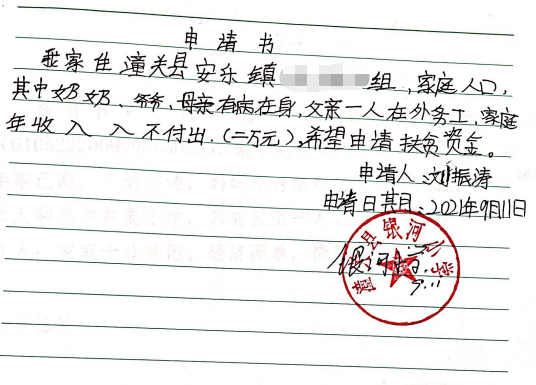 申请书
我家住潼关县安乐镇组，家庭人口，
其中奶奶、爷爷、母亲有病在身，父亲一人在外务工，家庭
年收入入不付出，(二万元)，希望申请扶贫资金。
申请人：刘振涛
申请日期：2021年9月11日
潼县银河小学